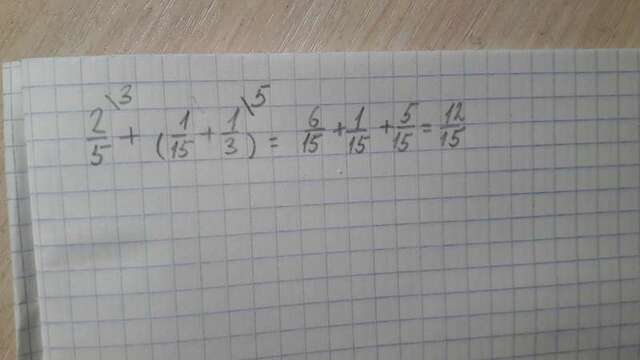 2/5\3 + (1/15 + 1/3\5) = 6/15 + 1/15 + 5/15 = 12/15